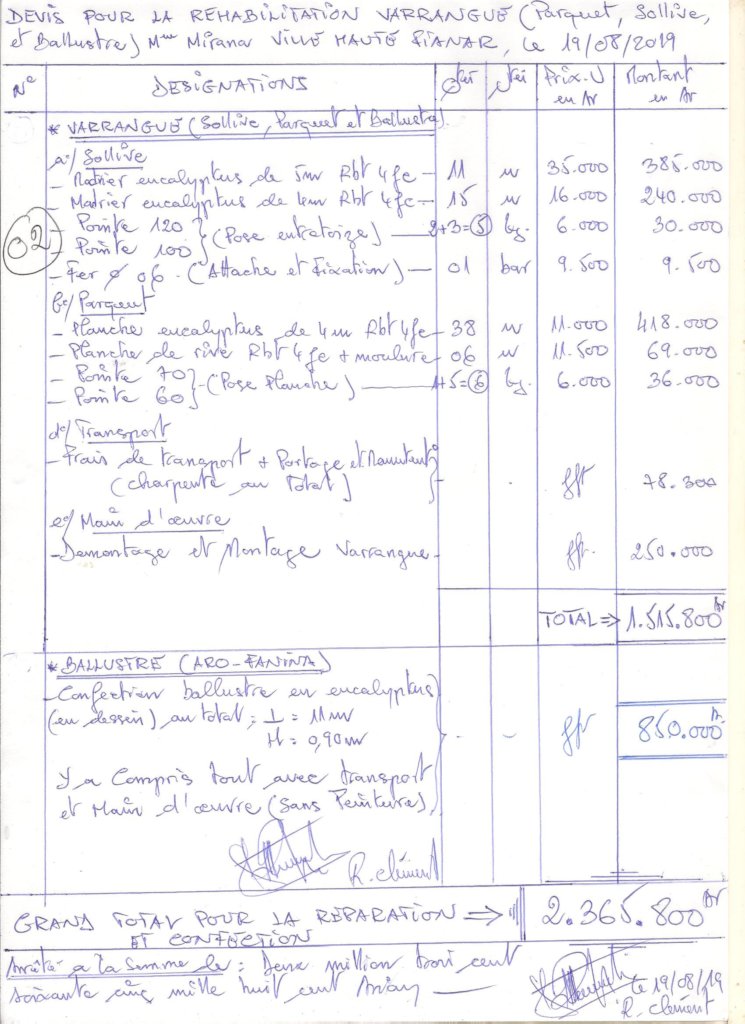 DEVIS POUR LA REHABILITATION VARRANGUE (Parquet, Sollive,
et Ballustre) Mme Mirana VILLE HAUTE FIANAR, le 19/08/2019
N° DESIGNATIONS Qté Prix.U en Ar Montant en Ar
* VARRANGUE (Sollive, Parquet et Ballustre)
a°/ Sollive
- Madrier eucalyptus de 5m Rbt 4fc - 11 35.000 385.000
- Madrier eucalyptus de 4m Rbt 4fc - 15 16.000 240.000
02
- Pointe 120
- Pointe 100 } (Pose entretoize) 2+3=5 kg. 6.000 30.000
- Fer ø 06 - (Attache et Fixation) - 01 bar 9.500 9.500
b°/ Parquet
- Planche eucalyptus de 4m Rbt 4fc - 38 11.000 418.000
- Planche de rive Rbt 4fc + moulure - 06 11.500 69.000
- Pointe 70
- Pointe 60 } - (Pose Planche) 1+5=6 kg. 6.000 36.000
d°/ Transport
- Frais de transport + Portage et Manutent°
(charpente au Total) - . fft 78.300
e°/ Main d'œuvre
- Demontage et Montage Varrangue - fft. 250.000
TOTAL => 1.515.800 Ar
* BALLUSTRE (ARO-FANINA)
- Confection ballustre en eucalyptus
(en dessin) au total ; L = 11m
H = 0,90m - - fft 850.000 Ar
Y a Compris tout avec transport
et Main d'œuvre (Sans Peinture)
R. clément
GRAND TOTAL POUR LA REPARATION => 2.365.800 Ar
ET CONFECTION
Arrêté a la Somme de : Deux million troi cent
soixante cinq mille huit cent Ariary
le 19/08/19
R. clément